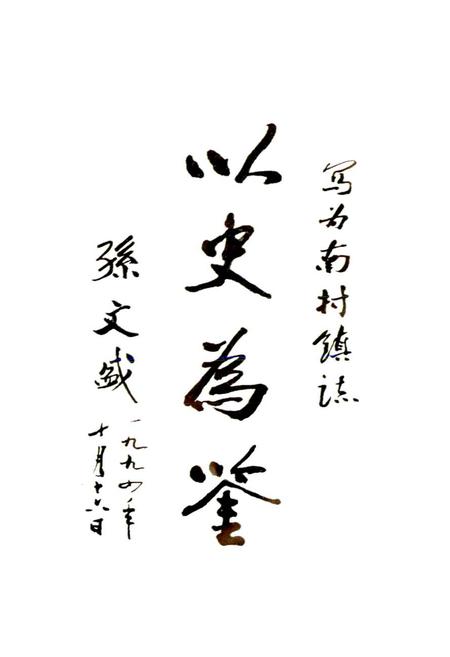 写为南村镇誌
以史為鉴
孫文盛
一九九四年
十月十六日